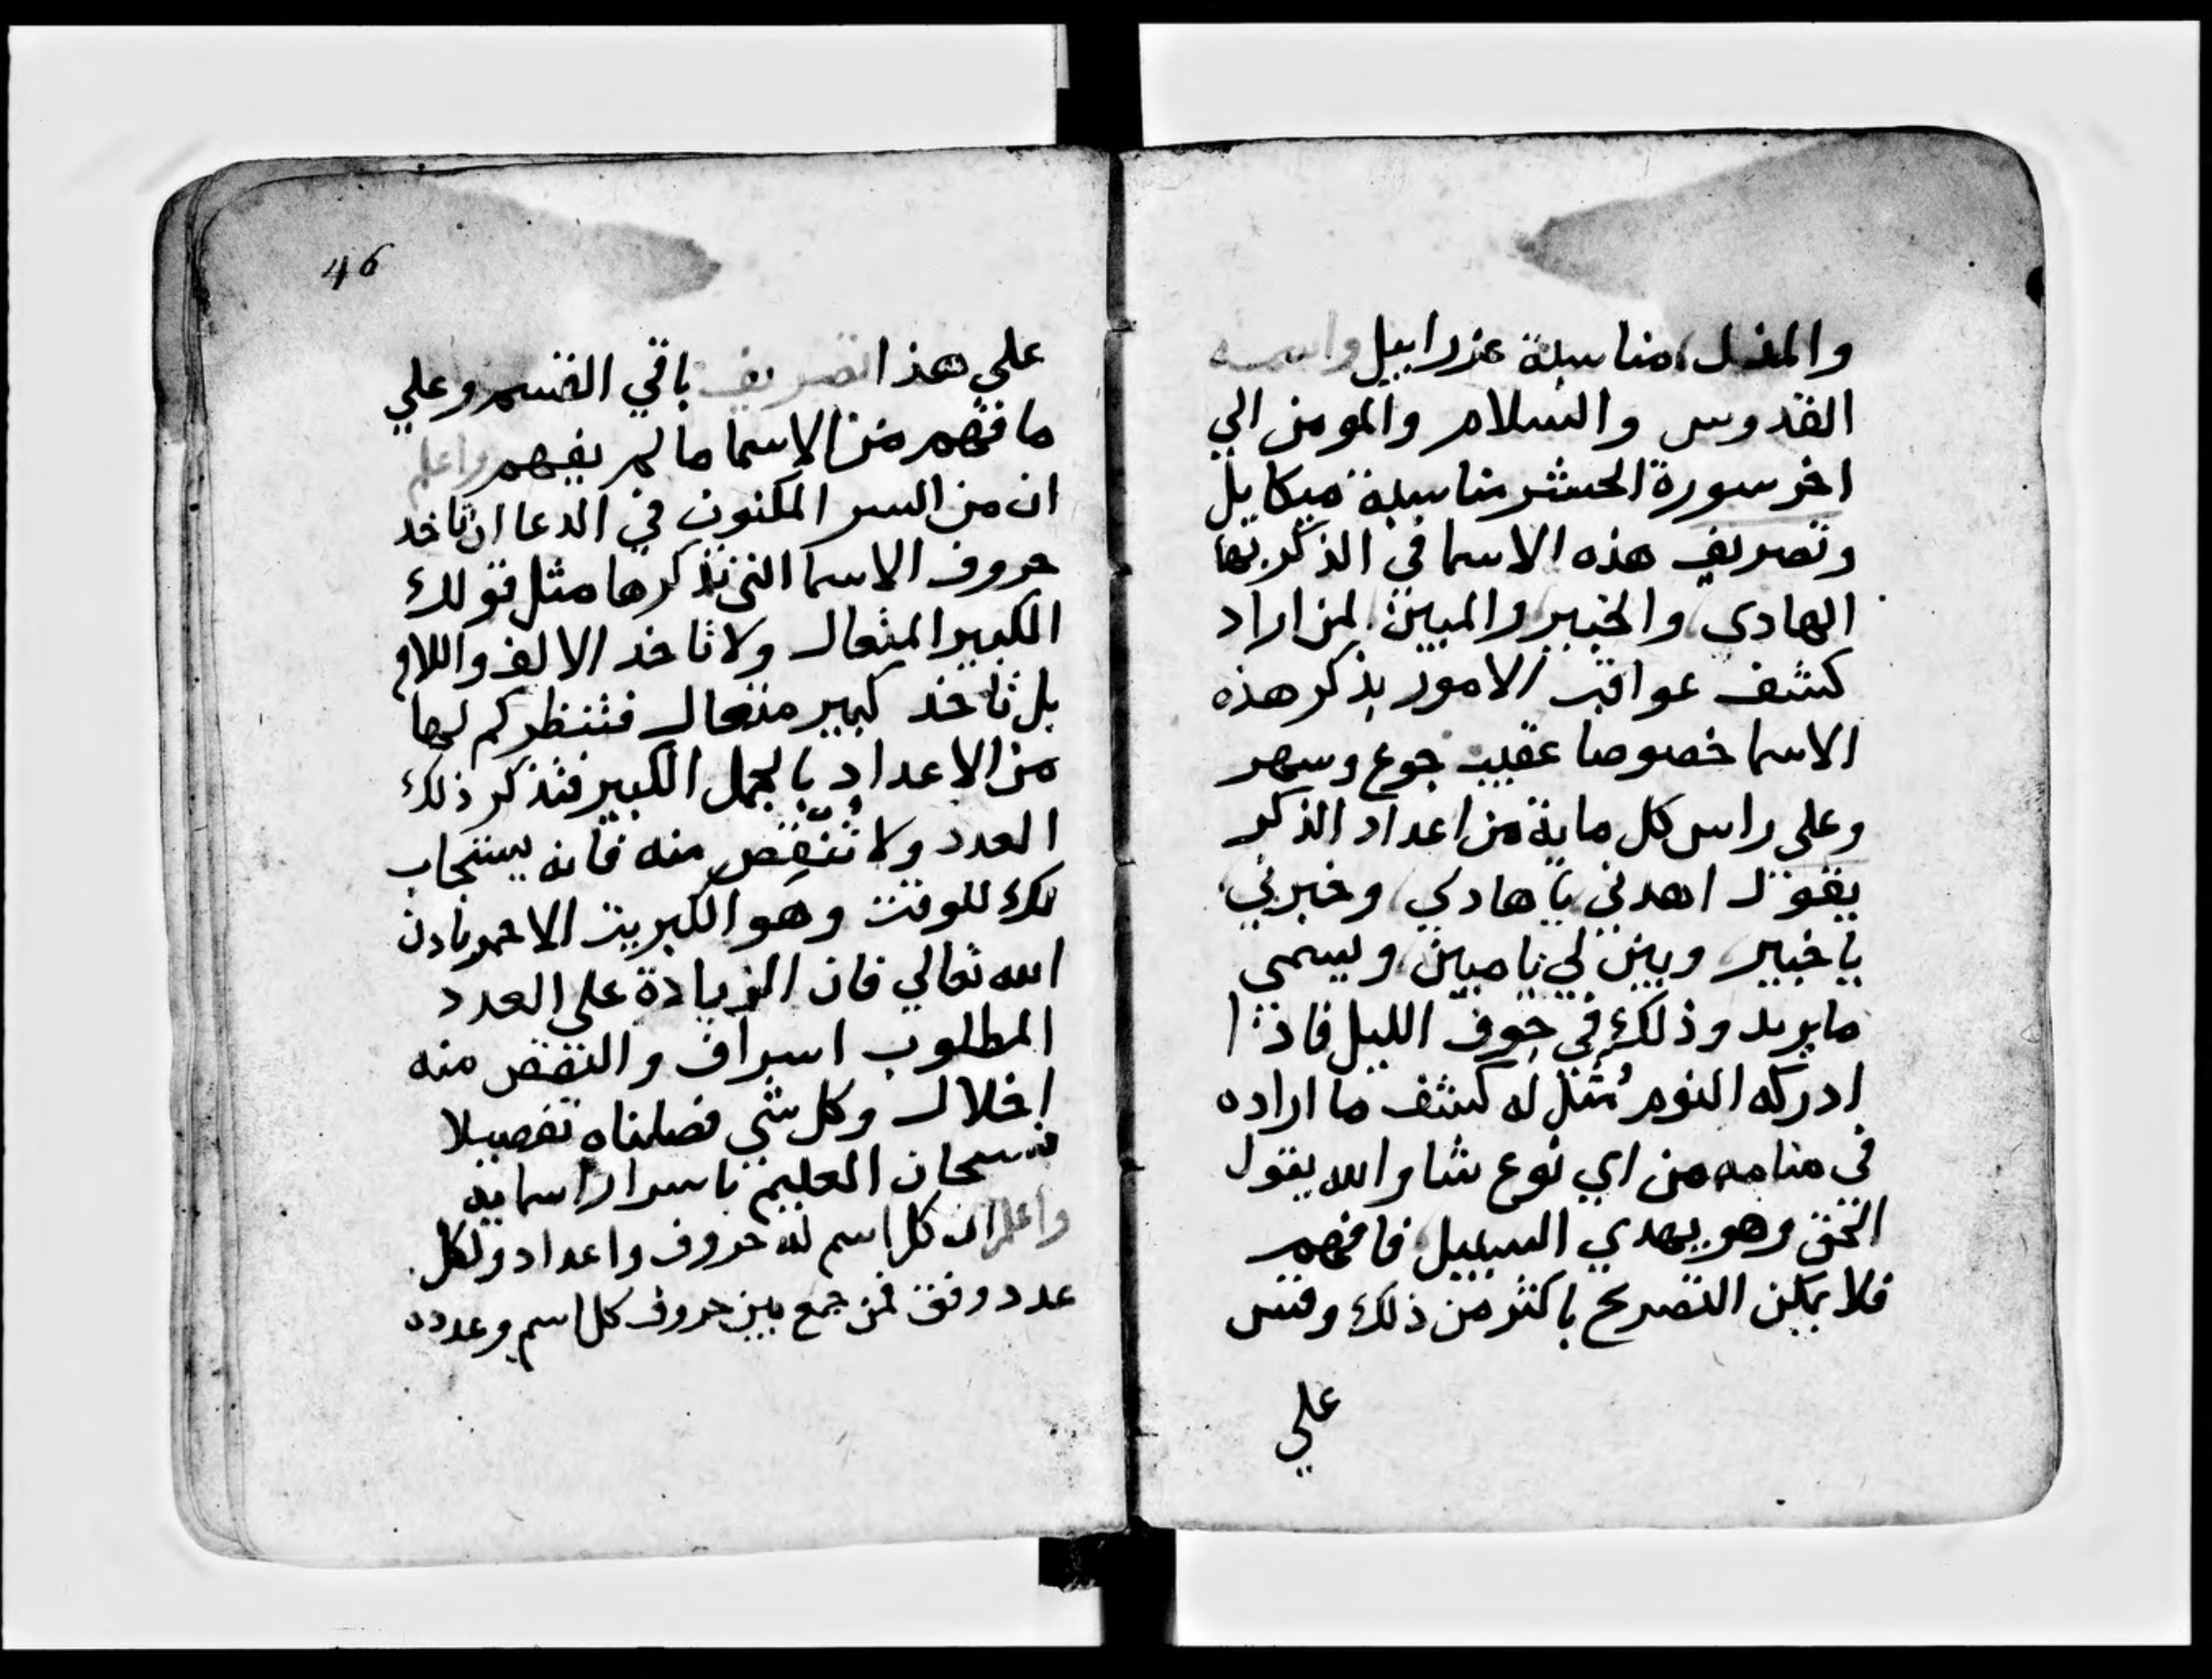 والمذل مناسبة عزراييل واسمه
القدوس والسلام والمومن الي
اخر سورة الحشر مناسبة ميكاييل
وتصريف هذه الاسما في الذكر بها
الهادي والخبير والمبين لمن اراد
كشف عواقب الامور بذكر هذه
الاسما خصوصا عقيب جوع وسهر
وعلي راس كل ماية من اعداد الذكر
يقول اهدني يا هادي وخبرني
يا خبير وبين لي يا مبين ويسمي
ما يريد وذلك في جوف الليل فاذا
ادركه النوم مُثل له كشف ما اراده
في منامه من اي نوع شا والله يقول
الحق وهو يهدي السبيل فافهم
فلا يمكن التصريح باكثر من ذلك وقس
علي
46
علي هذا تصريف باقي القسم وعلي
ما فهم من الاسما ما لم يفهم واعلم
ان من السر المكنون في الدعا ان تاخد
حروف الاسما التي تذكرها مثل قولك
الكبير المتعال ولا تاخد الالف واللام
بل تاخد كبير متعال فتنظر كم لها
من الاعداد بالجمل الكبير فتذكر ذلك
العدد ولا تُنقِص منه فانه يستجاب
لك للوقت وهو الكبريت الاحمر بادن
الله تعالي فان الزيادة علي العدد
المطلوب اسراف والنقص منه
اخلال وكل شي فصلناه تفصيلا
فسبحان العليم باسرار اسمايه
واعلم ان كل اسم له حروف واعداد ولكل
عدد وفق فمن جمع بين حروف كل اسم وعدده